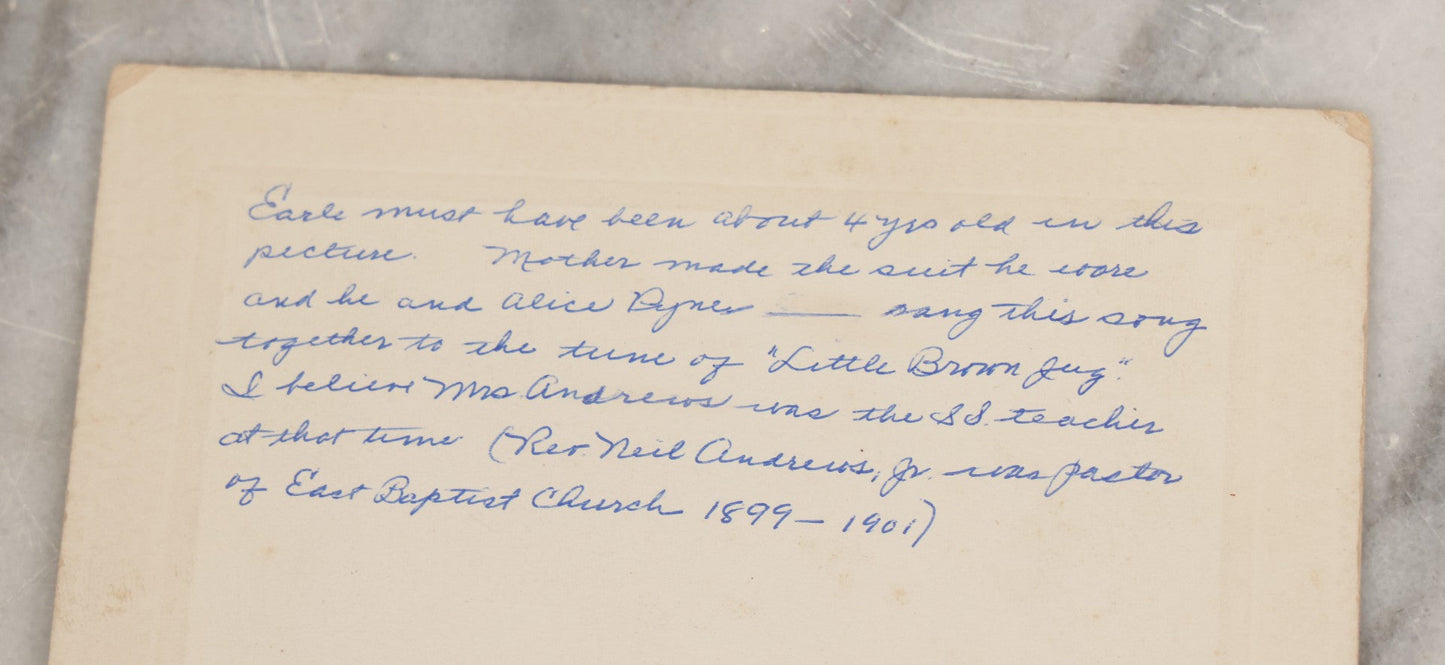 Earle must have been about 4 yrs old in this
picture. Mother made the suit he wore
and he and Alice Pyne ____ sang this song
together to the tune of "Little Brown Jug".
I believe Mrs. Andrews was the S.S. teacher
at that time (Rev. Neil Andrews, Jr. was pastor
of East Baptist Church 1899 – 1901)